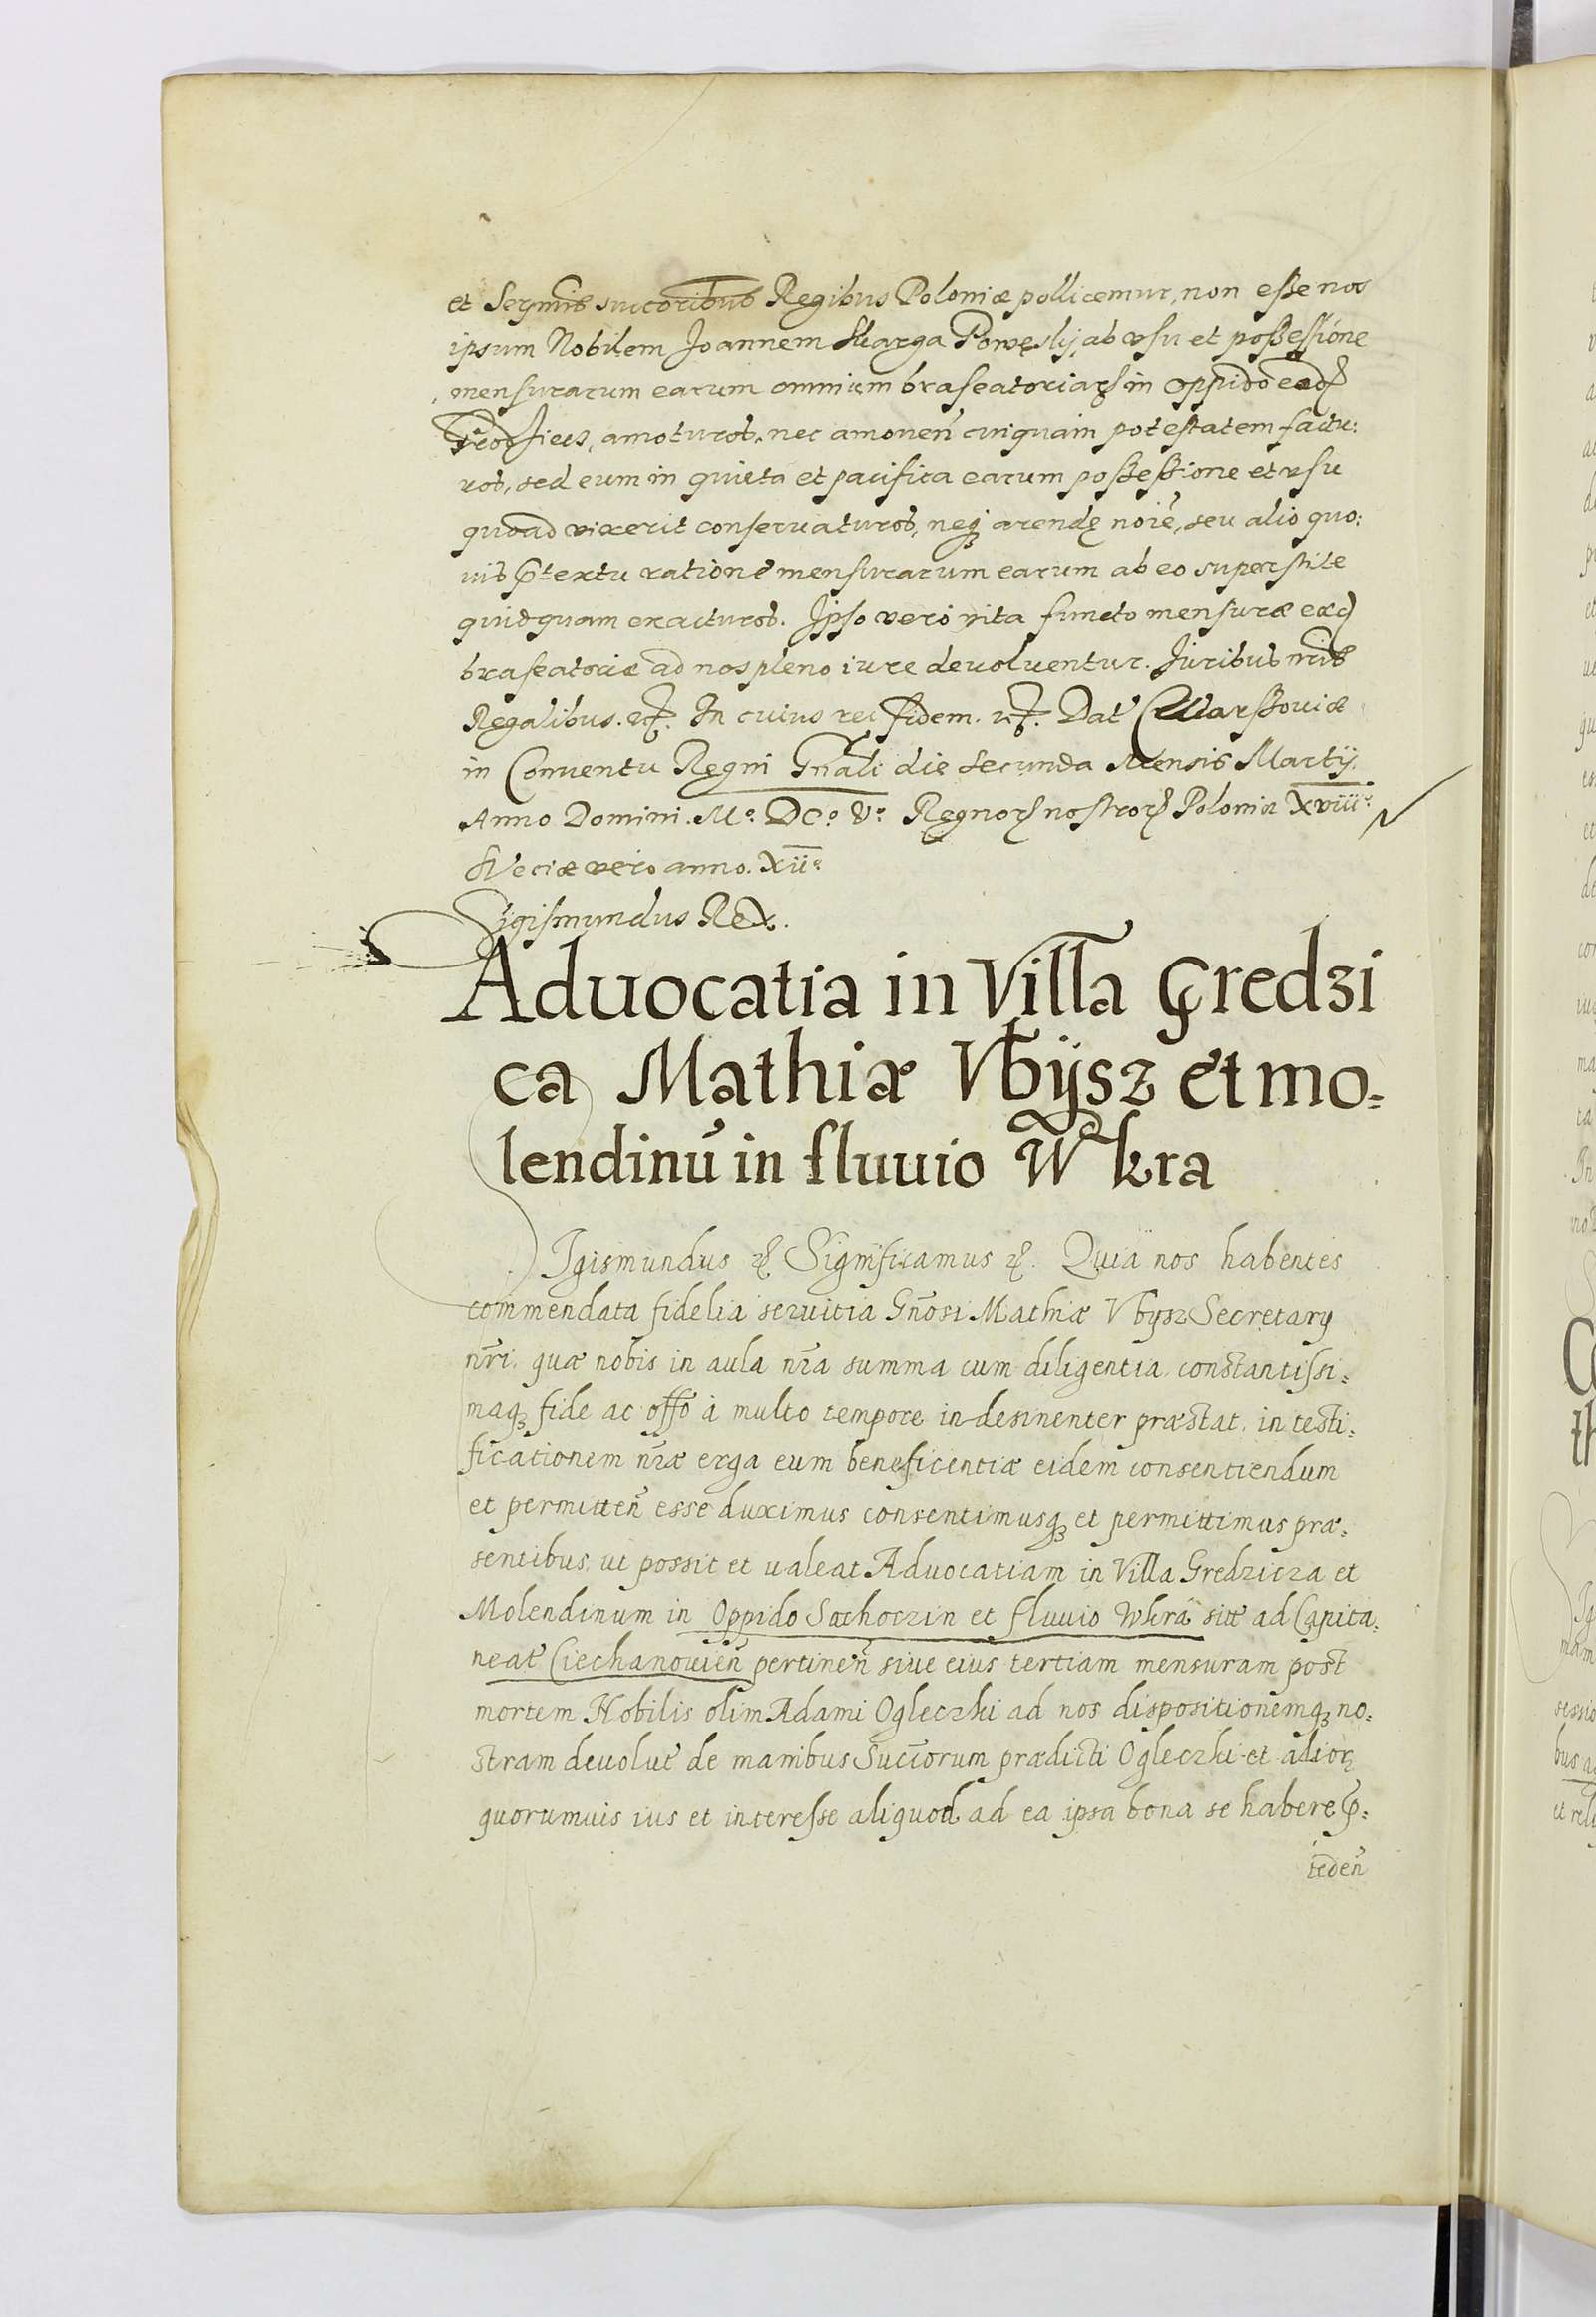 et Sermis succoribus Regibus Poloniæ pollicemur, non esse nos
ipsum Nobilem Joannem Skarga Powęslij, ab vsu et possessione
mensurarum earum omnium braseatoriarꝝ in oppido eodꝫ
amoturos, nec amoven̄ cuiquam potestatem factu:
ros, sed eum in quieta et pacifica earum possessione et vsu
quoad vixerit conservaturos, neqꝫ arendę noiē, seu alio quo:
vis p̄textu ratione mensurarum earum ab eo superstite
quidquam exacturos. Ipso vero vita functo mensuræ eædꝫ
braseatoriæ ad nos pleno iure devoluentur. Iuribus nris
Regalibus. etc. In cuius rei fidem. etc. Dat̄ Warssoviæ
in Conventu Regni Gn̄ali die secunda Mensis Martij.
Anno Domini. Mº. DCº. Vº. Regnorꝝ nostrorꝝ Poloniæ XVIIIº.
Sveciæ vero anno. XIIº
Sigismundus Rex.
Aduocatia in Villa Gredzi
ca Mathiæ Vbijsz et mo=
lendinū in fluuio Wkra
Igismundus etc. Significamus etc. Quia nos habentes
commendata fidelia seruitia Gn̄osi Mathiæ Vbysz Secretarij
nr̄i, quæ nobis in aula nr̄a summa cum diligentia, constantissi=
maqꝫ fide ac offō à multo tempore indesinenter præstat, in testi=
ficationem nr̄æ erga eum beneficentiæ eidem consentiendum
et permitten̄ esse duximus consentimusqꝫ et permittimus præ=
sentibus, ut possit et ualeat Aduocatiam in Villa Gredzicza et
Molendinum in Oppido Sochoczin et fluuio Wkra sitt̄ ad Capita=
neat̄ Ciechanouien̄ pertinen̄ siue eius tertiam mensuram post
mortem Nobilis olim Adami Ogleczki ad nos dispositionemqꝫ no=
stram deuolut̄ de manibus Succ̄orum prædicti Ogleczki et aliorꝝ
quorumuis ius et interesse aliquod ad ea ipsa bona se habere p̄=
teden̄